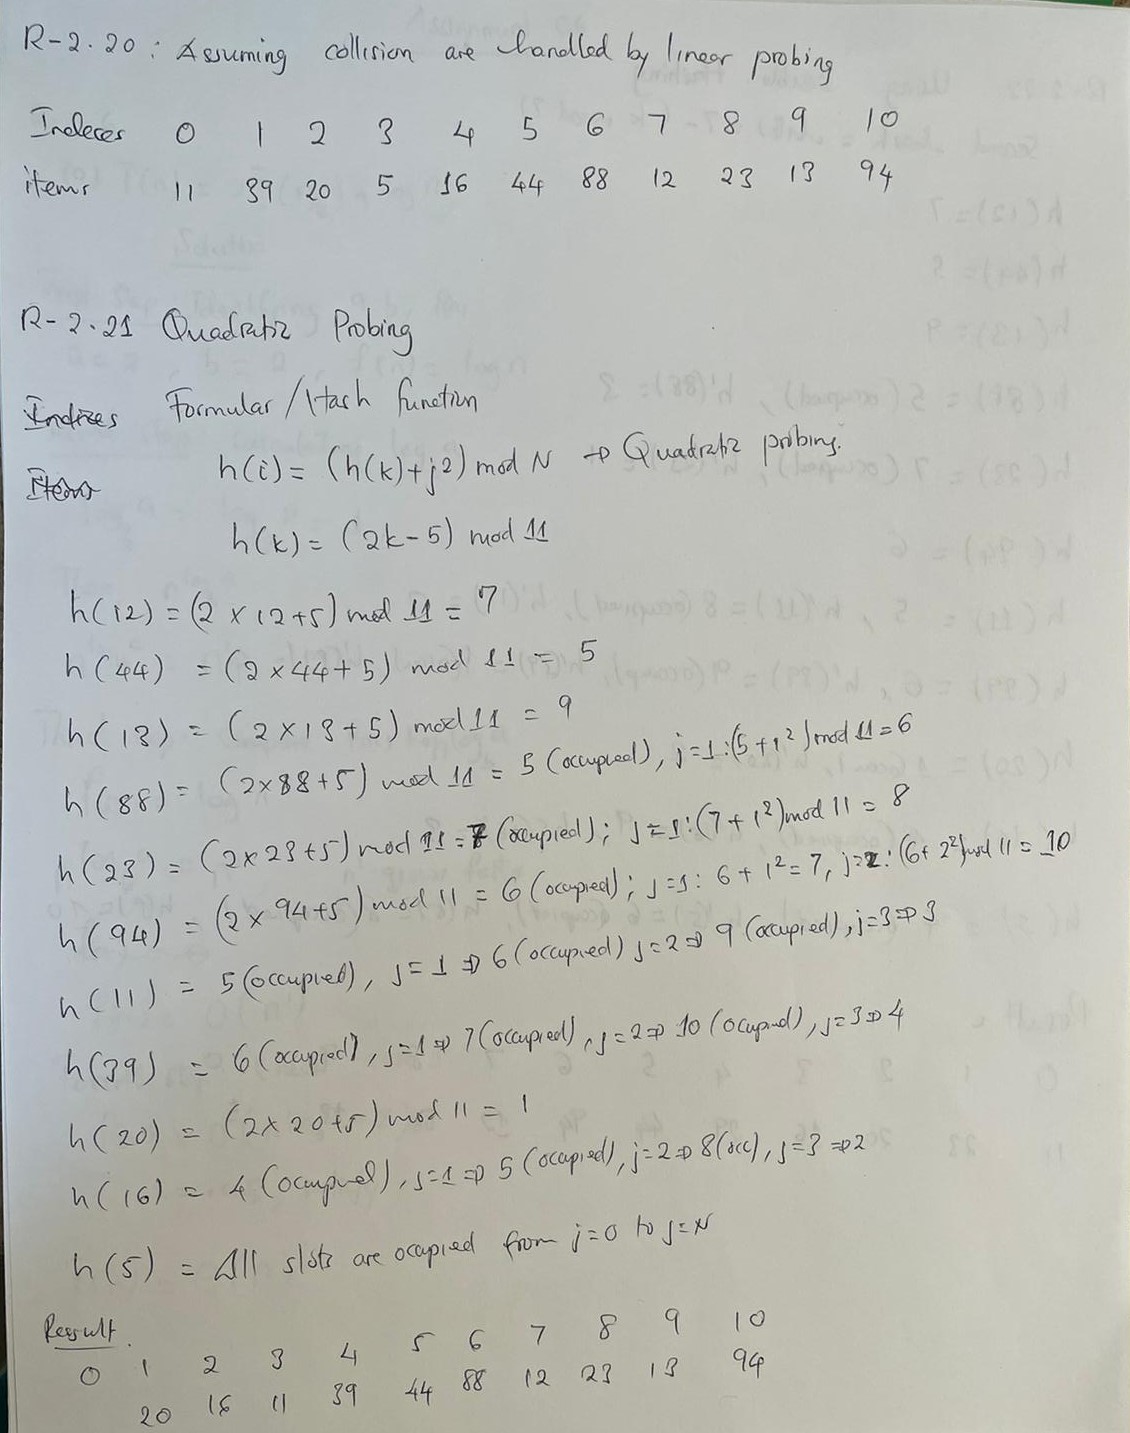 R-2.20: Assuming collision are handled by linear probing
Indeces 0 1 2 3 4 5 6 7 8 9 10
items 11 39 20 5 16 44 88 12 23 13 94
R-2.21 Quadratic Probing
Indices Formular/Hash function
h(i) = (h(k)+j2) mod N → Quadratic probing.
Items
h(k) = (2k-5) mod 11
h(12) = (2 x 12+5) mod 11 = 7
h(44) = (2x44+5) mod 11 = 5
h(13) = (2x13+5) mod 11 = 9
h(88) = (2x88+5) mod 11 = 5 (occupied), j=1:(5+1²) mod 11 = 6
h(23) = (2x23+5) mod 11 = 7 (occupied); j=1:(7+1²) mod 11 = 8
h(94) = (2x94+5) mod 11 = 6 (occupied); j=1: 6+1²=7, j=2: (6+2²) mod 11 = 10
h(11) = 5 (occupied), j=1 ⇒ 6 (occupied) j=2 ⇒ 9 (occupied), j=3 ⇒ 3
h(39) = 6 (occupied), j=1 ⇒ 7 (occupied), j=2 ⇒ 10 (ocupied), j=3 ⇒ 4
h(20) = (2x20+5) mod 11 = 1
h(16) = 4 (ocupied), j=1 ⇒ 5 (occupied), j=2 ⇒ 8 (occ), j=3 ⇒ 2
h(5) = All slots are ocapied from j=0 to j=N
Result.
0 1 2 3 4 5 6 7 8 9 10
20 16 11 39 44 88 12 23 13 94